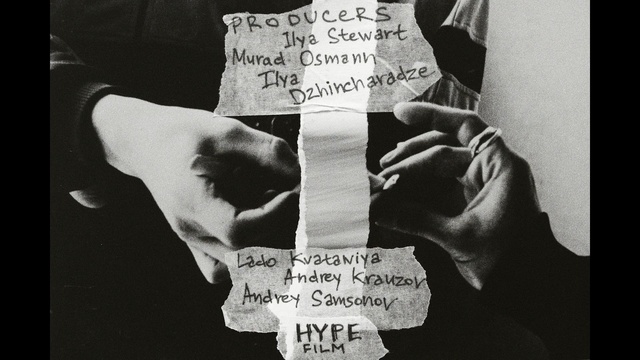 PRODUCERS
Ilya Stewart
Murad Osmann
Ilya
Dzhincharadze
Lado Kvataniya
Andrey Krauzov
Andrey Samsonov
HYPE
FILM